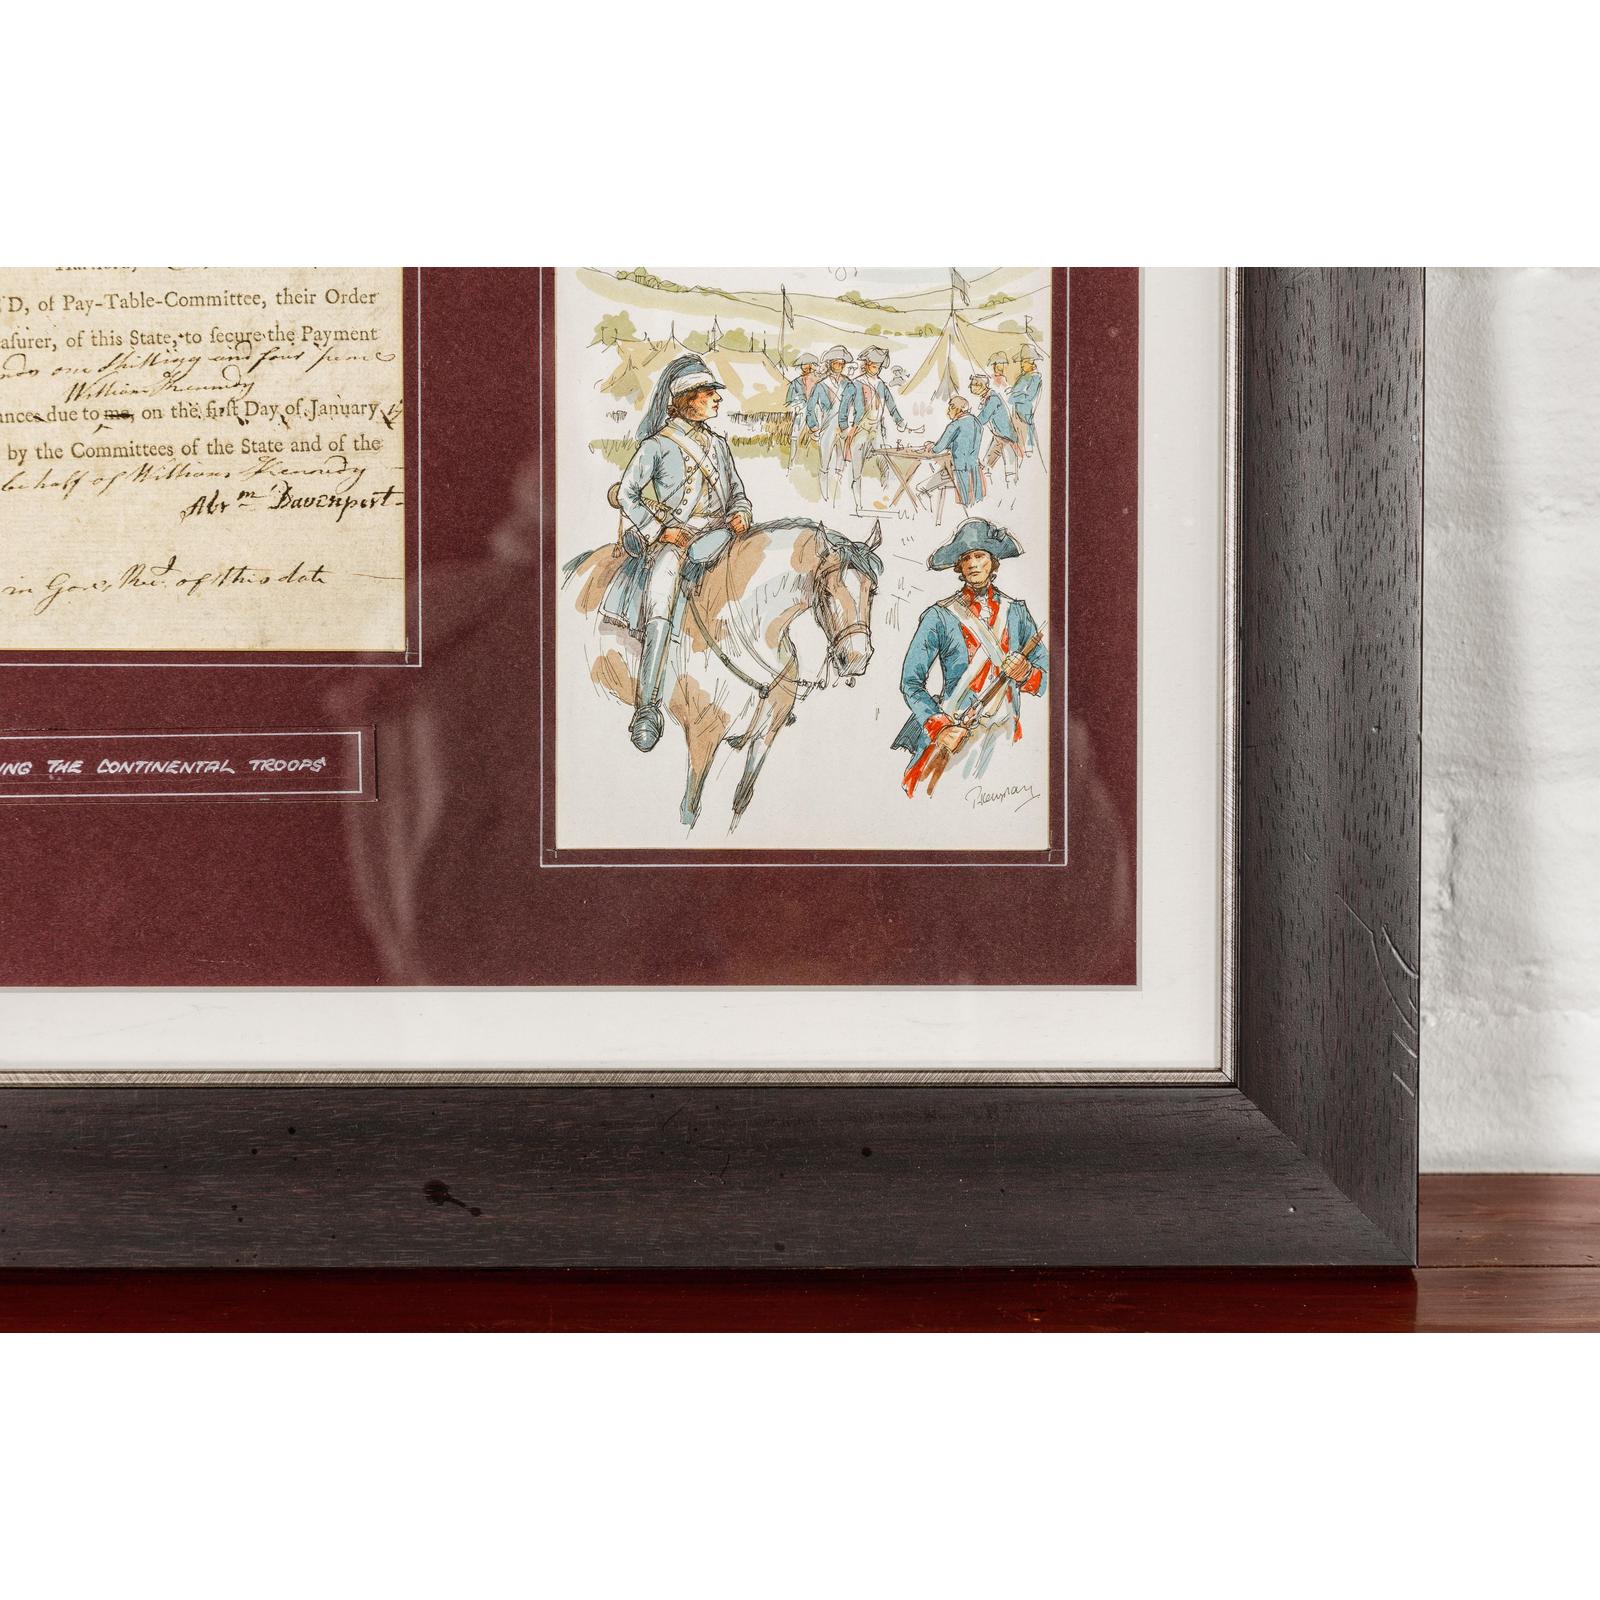 'D, of Pay-Table-Committee, their Order
asurer, of this State, to secure the Payment
one shilling and four pence
William Kennedy
ances due to me, on the first Day of January
by the Committees of the State and of the
behalf of William Kennedy
Abrm Davenport
in Gov. Recd. of this date
ING THE CONTINENTAL TROOPS